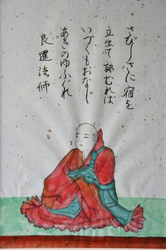 さびしさに宿を
立出て詠むれは
いづくもおなじ
あきのゆふぐれ
良暹法師